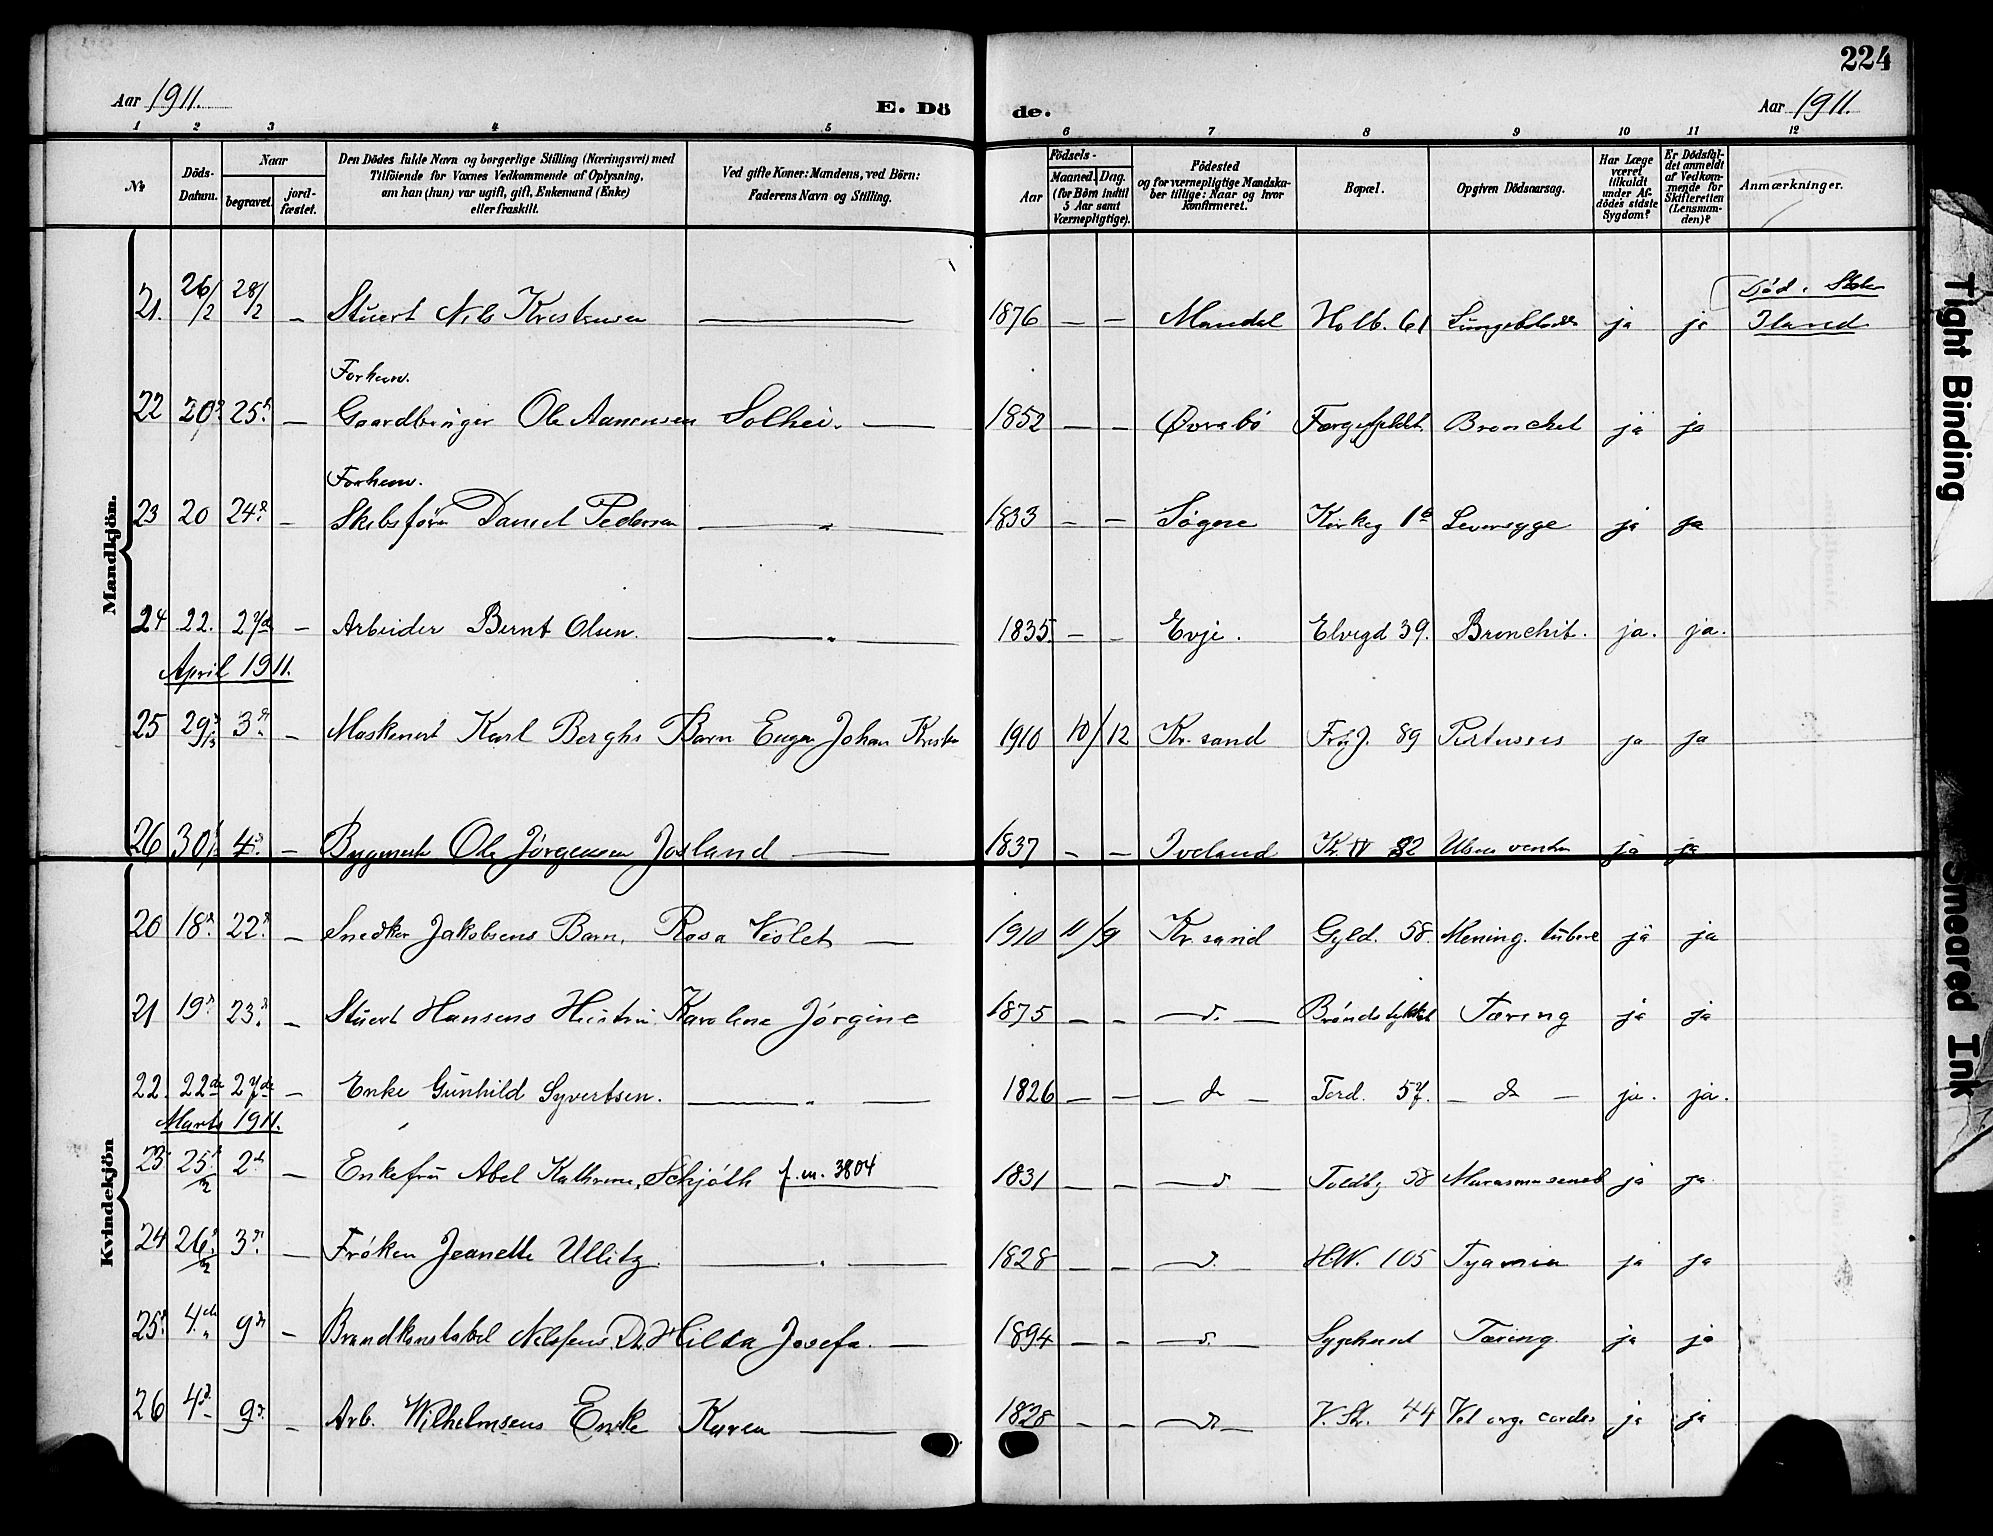 224
Aar 1911.
E. Dö
de.
Aar 1911.
1 2 3 4 5 6 7 8 9 10 11 12
No
Döds-Datum.
Naar
begravet.
jord-fæstet.
Den Dödes fulde Navn og borgerlige Stilling (Næringsvei) med
Tilföiende for Voxnes Vedkommende af Oplysning,
om han (hun) var ugift, gift, Enkemand (Enke)
eller fraskilt.
Ved gifte Koner: Mandens, ved Börn:
Faderens Navn og Stilling.
Födsels-
Aar
Maaned. Dag.
(for Börn indtil
5 Aar samt
Værnepligtige).
Födested
og for værnepligtige Mandska-
ber tillige: Naar og hvor
konfirmeret.
Bopæl.
Opgiven Dödsaarsag.
Har Læge
været
tilkaldt
under Af-
dödes sidste
Sygdom?
Er Dödsfal-
det anmeldt
af Vedkom-
mende for
Skifteretten
(Lensman-
den)?
Anmærkninger.
Mandkjön.
21. 26/2 28/2 – Stuert Nils Kristensen — 1876 – – Mandal Holb. 61 ja ja
Forhenv.
22 20 25 – Gaardbruger Ole Aanensen Solhei. — 1852 – – Øvrebö Bronchit ja ja
Forhenv.
23 20 24 – Skibsförer Daniel Pedersen — " — 1833 – – Søgne Kirkeg 1b Leversyge ja ja
24 22. 27de – Arbeider Bernt Olsen. — " — 1835 – – Evje. Elvegd 39. Bronchit. ja. ja.
April 1911.
25 29/3 3 – Karl Berghs Barn Eugen Johan 1910 10/12 Kr. sand 89 Pertussis ja ja
26 30 4 – Ole Jørgensen Josland — 1837 – – Iveland ja ja
Kvindekjön
20 18 22 – Snedker Jakobsens Barn, Rosa Violet — 1910 11/9 Kr. sand Gyld. 58. Mening. tuberc ja ja
21 19 23. – Stuert Hansens Hustru Karoline Jørgine 1875 – – — d. — Tæring ja ja
22. 22de 27de – Enke Gunhild Syvertsen. — " — 1826 – – — do — Tord. 57. – do – ja. ja.
Marts 1911.
23 25/2 2 – Enkefru Abel Kathrine Schjøth f. m. 3804 1831 – – — d. — Toldb. 58 ja ja
24 26/2 3 – Frøken Jeanette Ullitz. — " — 1828 – – — d. — H.W. 105 ja ja
25 4 9 – Brandkonstabel Nilsens D. Hilda Josefa. — 1894 – – — d. — Sygehuset Tæring ja ja
26 4 9 – Arb. Wilhelmsens Enke Karen — 1828 – – — do — V. Str. 44 Vit. org. cordis ja ja
Tight Binding
Smeared Ink